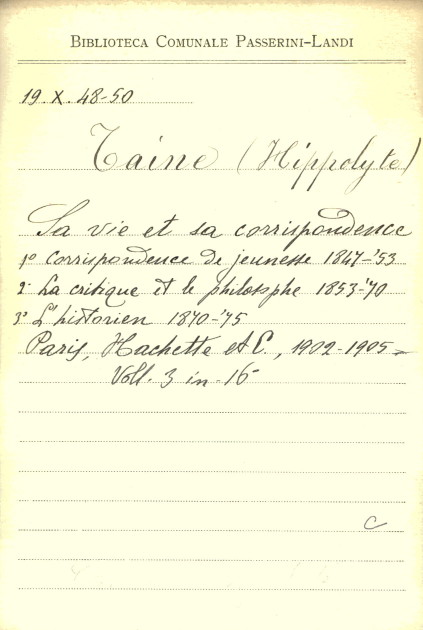 BIBLIOTECA COMUNALE PASSERINI-LANDI
19. X. 48-50
Taine (Hippolyte)
Sa vie et sa correspondence
1º Correspondence de jeunesse 1847-'53
2º La critique et le philosophe 1853-'70
3º L'historien 1870-'75
Paris, Hachette et C., 1902-1905 =
Voll. 3 in-16º
C